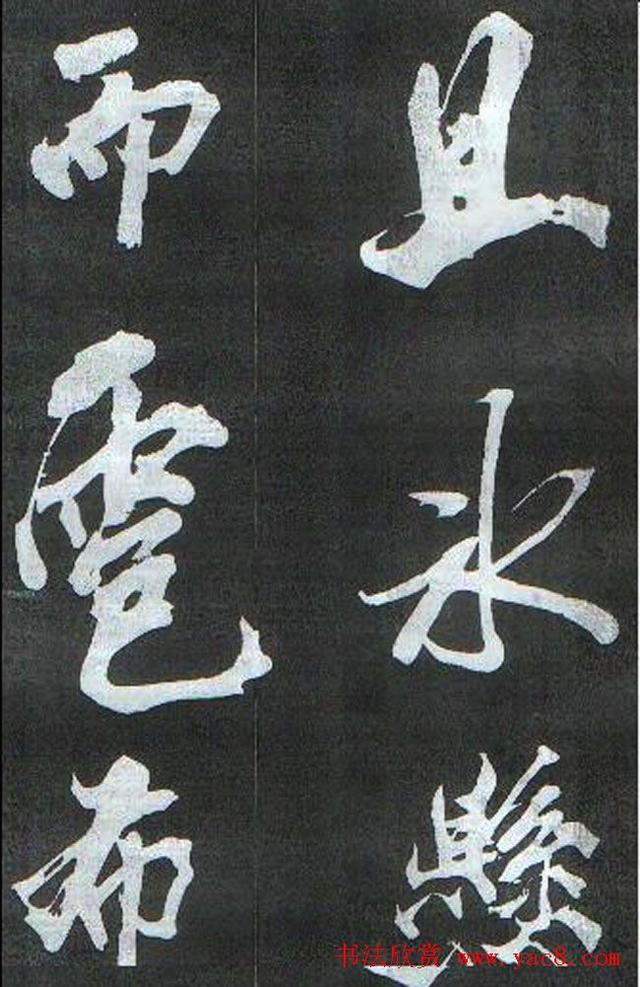 且氷懸
而雹布
书法欣赏 www.yac8.com